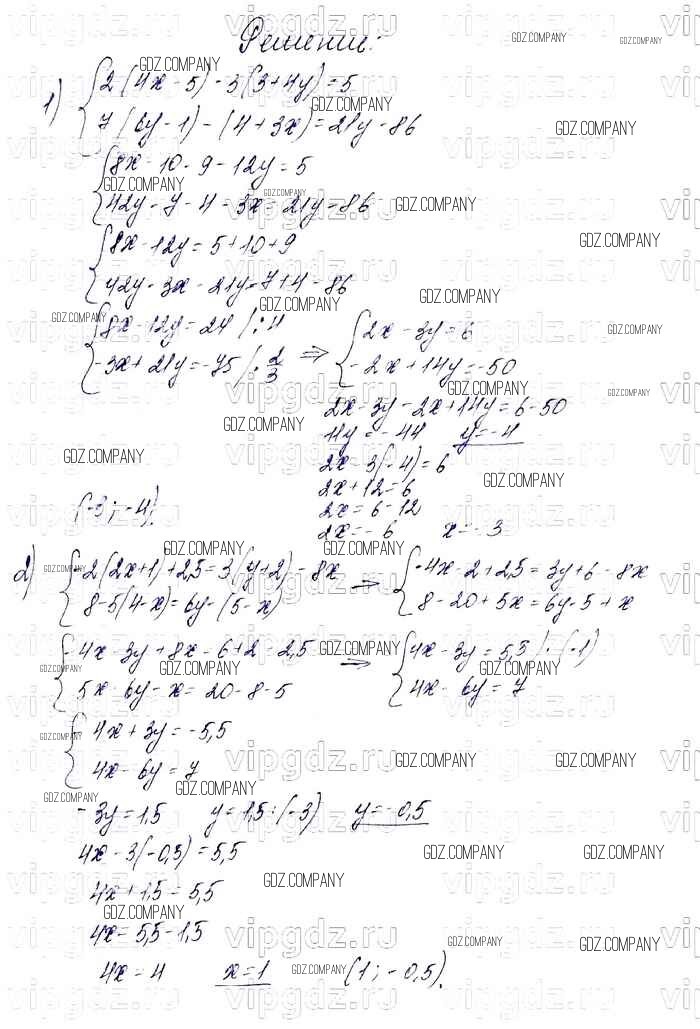 Решение:
1) { 2(4x - 5) - 3(3 + 4y) = 5
7(6y - 1) - (4 + 3x) = 21y - 86
{ 8x - 10 - 9 - 12y = 5
42y - 7 - 4 - 3x = 21y - 86
{ 8x - 12y = 5 + 10 + 9
42y - 3x - 21y = 7 + 4 - 86
{ 8x - 12y = 24 / : 4
-3x + 21y = -75 / · 2/3
⇒ { 2x - 3y = 6
-2x + 14y = -50
2x - 3y - 2x + 14y = 6 - 50
11y = -44 y = -4
2x - 3(-4) = 6
2x + 12 = 6
2x = 6 - 12
2x = -6 x = -3
(-3; -4).
2) { -2(2x+1) + 2,5 = 3(y+2) - 8x
8 - 5(4 - x) = 6y - (5 - x)
⇒ { -4x - 2 + 2,5 = 3y + 6 - 8x
8 - 20 + 5x = 6y - 5 + x
{ -4x - 3y + 8x = 6 + 2 - 2,5
5x - 6y - x = 20 - 8 - 5
⇒ { 4x - 3y = 5,5 / · (-1)
4x - 6y = 7
{ 4x + 3y = -5,5
4x - 6y = 7
-3y = 1,5 y = 1,5 : (-3) y = -0,5
4x - 3(-0,5) = 5,5
4x + 1,5 = 5,5
4x = 5,5 - 1,5
4x = 4 x = 1 (1; -0,5).
GDZ.COMPANY
vipgdz.ru